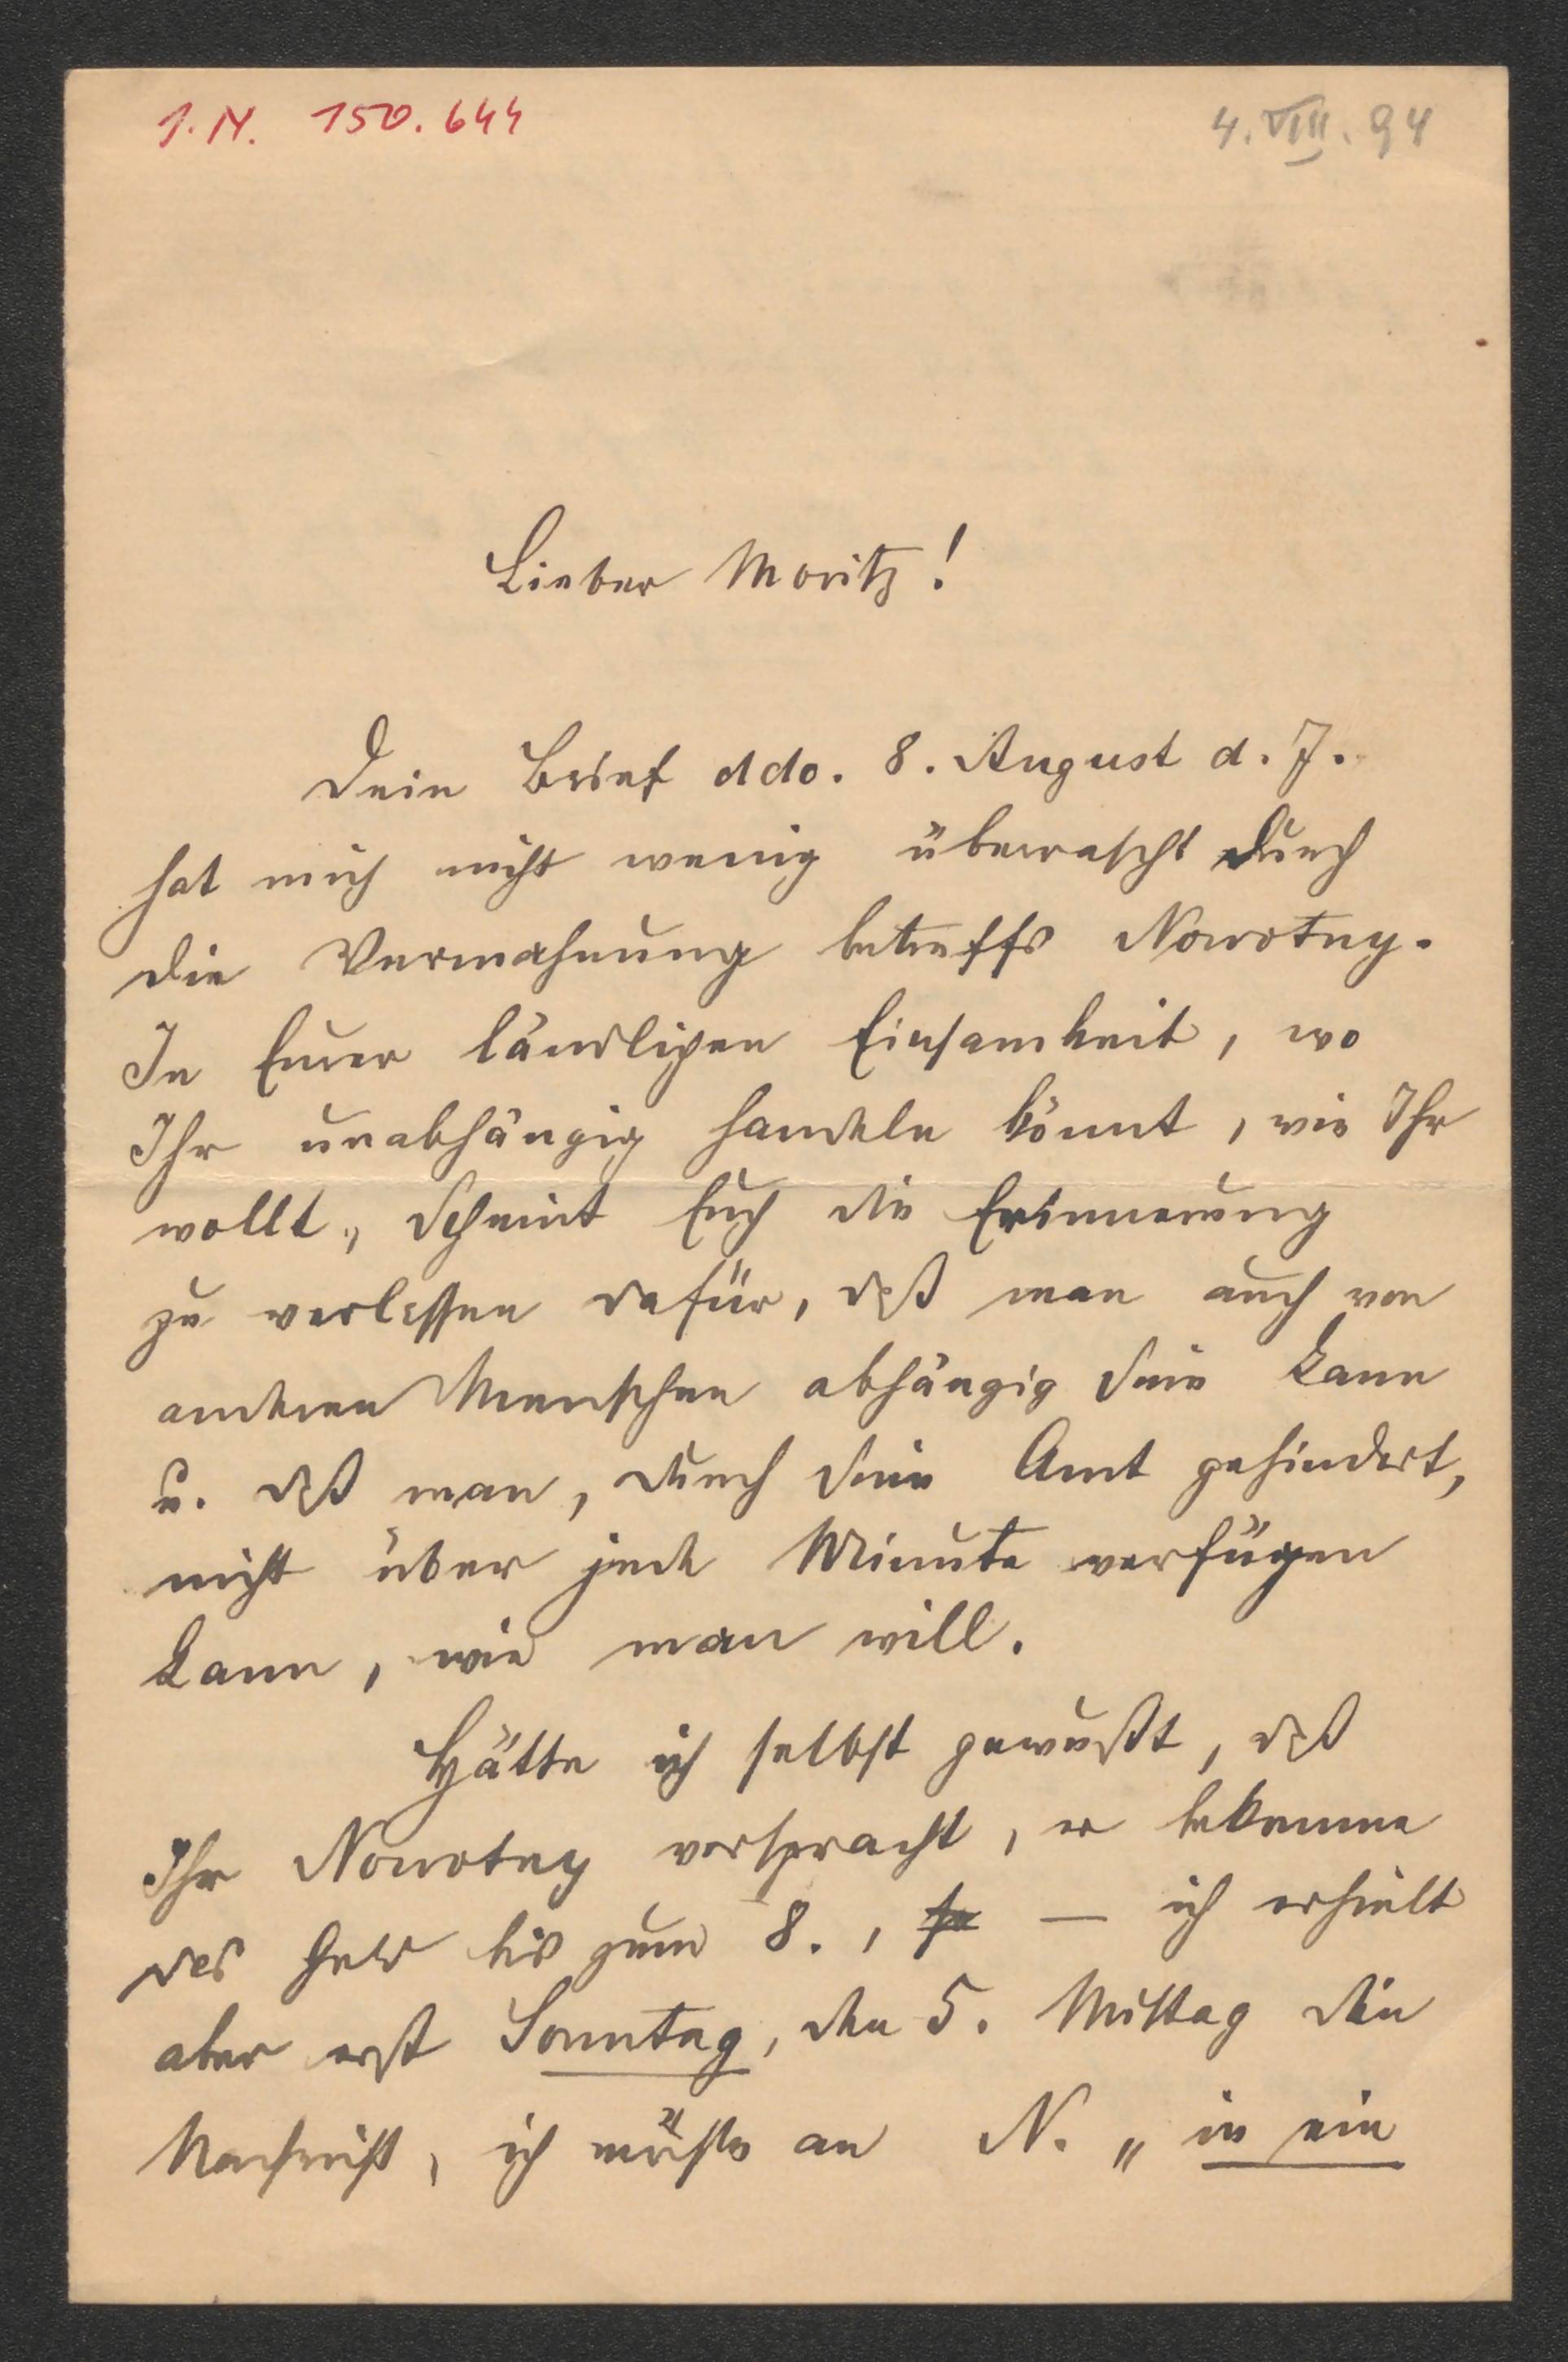 I. N. 150.644
4. VIII. 94
Lieber Moritz!
Dein Brief ddo. 8. August d. J.
hat mich nicht wenig überrascht durch
die Vermahnung betreffs Nowotny.
In Euer ländlichen Einsamkeit, wo
Ihr unabhängig handeln könnt, wie Ihr
wollt, scheint Euch die Erinnerung
zu verlassen dafür, daß man auch von
anderen Menschen abhängig sein kann
u. daß man, durch sein Amt gehindert,
nicht über jede Minute verfügen
kann, wie man will.
Hätte ich selbst gewußt, daß
Ihr Nowotny verspracht, er bekomme
das Geld bis zum 8., – ich erhielt
aber erst Sonntag, den 5. Mittag die
Nachricht, ich müßte an N. „in ein